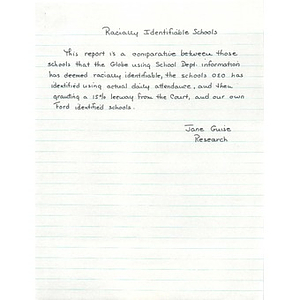 Racially Identifiable Schools
This report is a comparative between those
schools that the Globe using School Dept. information
has deemed racially identifiable, the schools OEO has
identified using actual daily attendance, and then
granting a 15% leeway from the Court, and our own
Ford identified schools.
Jane Guise
Research